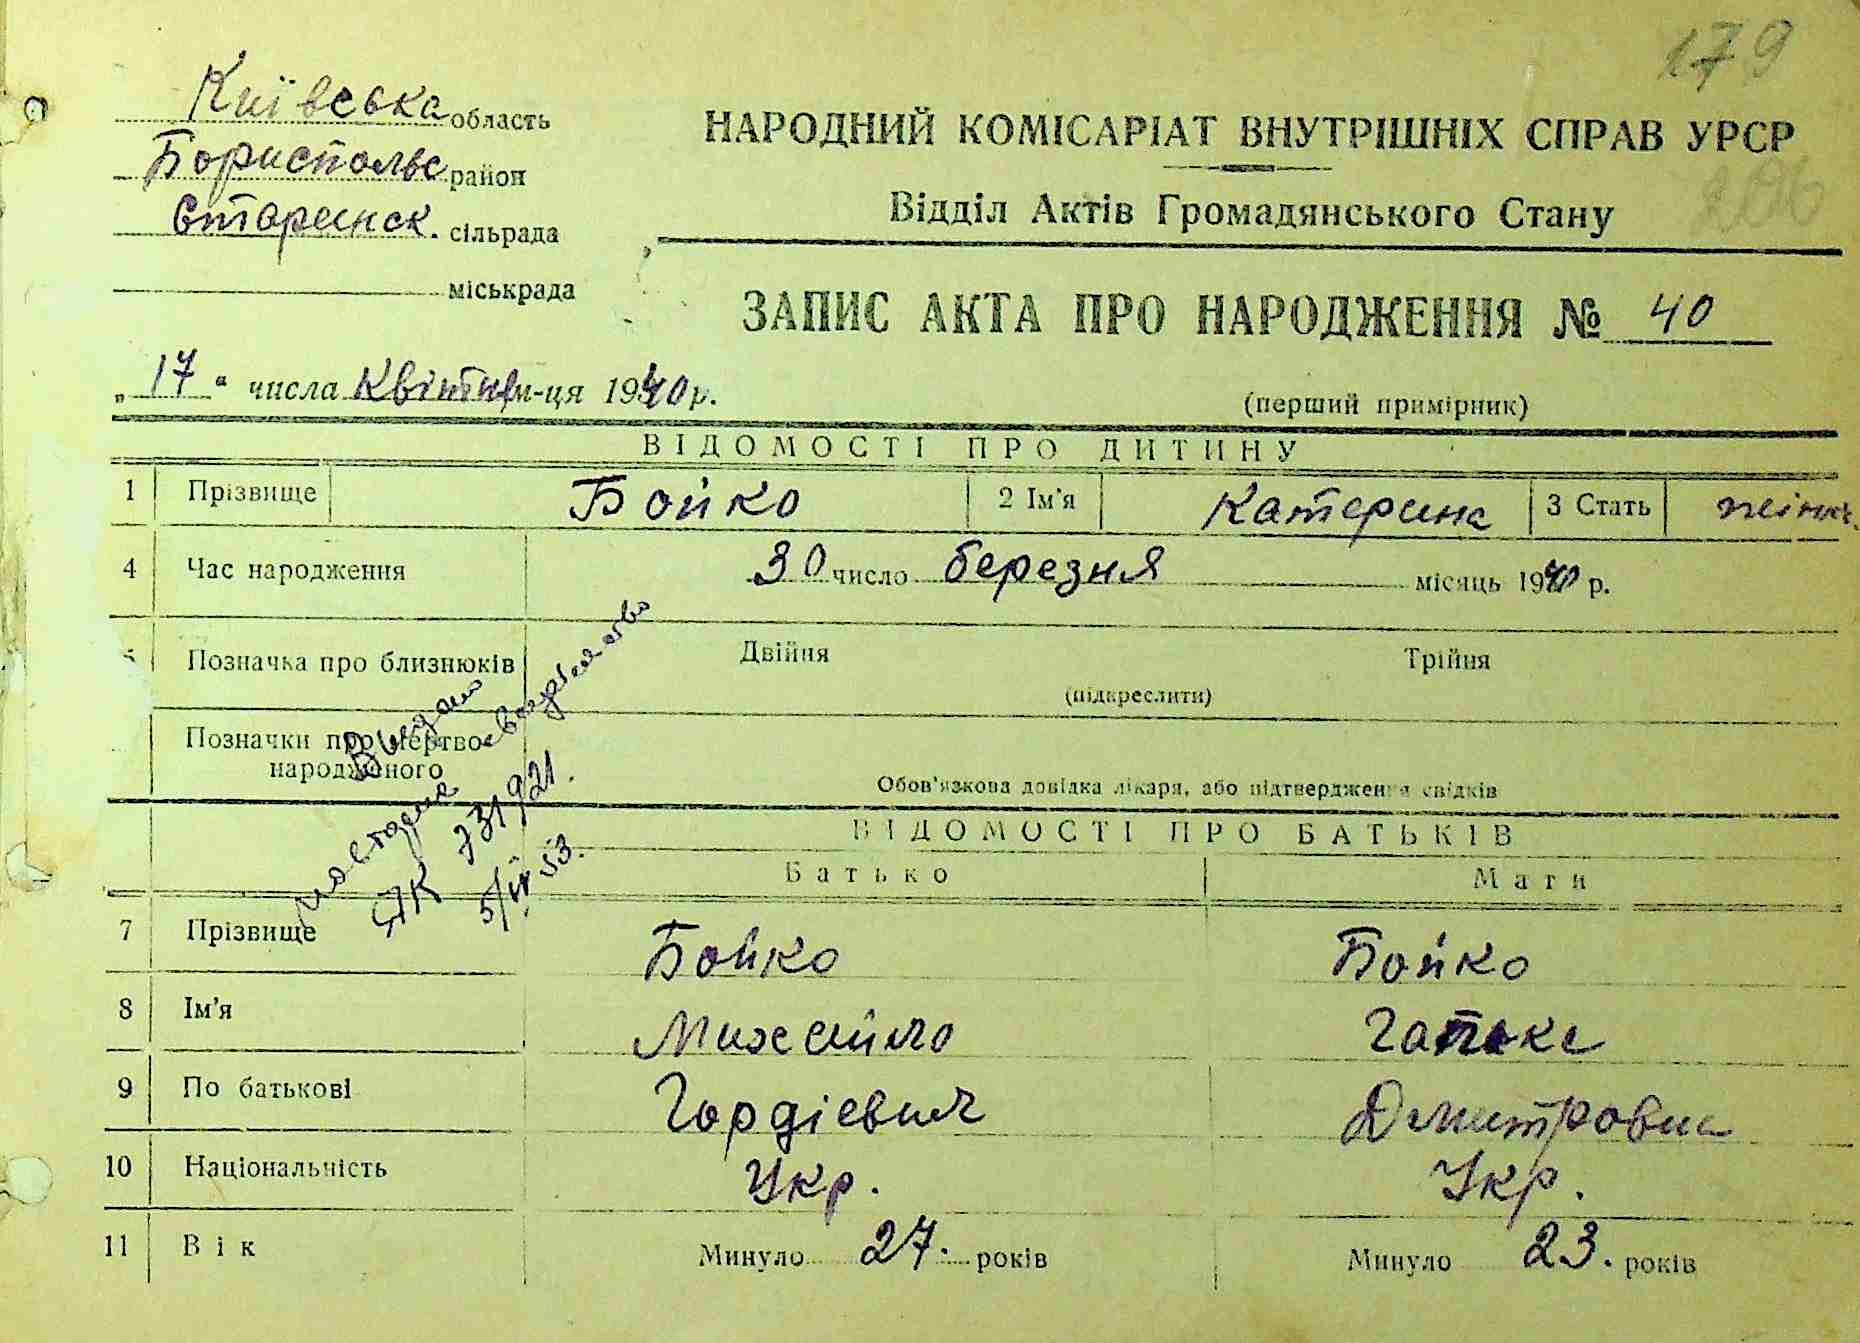 179
Київська область
Бориспольс район
Старинск. сільрада
міськрада
НАРОДНИЙ КОМІСАРІАТ ВНУТРІШНІХ СПРАВ УРСР
206
Відділ Актів Громадянського Стану
ЗАПИС АКТА ПРО НАРОДЖЕННЯ № 40
„17“ числа Квітня м-ця 1940 р.
(перший примірник)
ВІДОМОСТІ ПРО ДИТИНУ
1 Прізвище Бойко 2 Ім'я Катерина 3 Стать жіноч.
4 Час народження 30 число березня місяць 1940 р.
5 Позначка про близнюків Двійня Трійня
(підкреслити)
Позначки про мертвонародженого
Обов'язкова довідка лікаря, або підтвердження свідків
Видано
повторне свидетельство
ЯК 731921.
5/IV 53.
ВІДОМОСТІ ПРО БАТЬКІВ
Батько Мати
7 Прізвище Бойко Бойко
8 Ім'я Михайло Гапка
9 По батькові Гордієвич Дмитровна
10 Національність Укр. Укр.
11 Вік Минуло 27. років Минуло 23. років